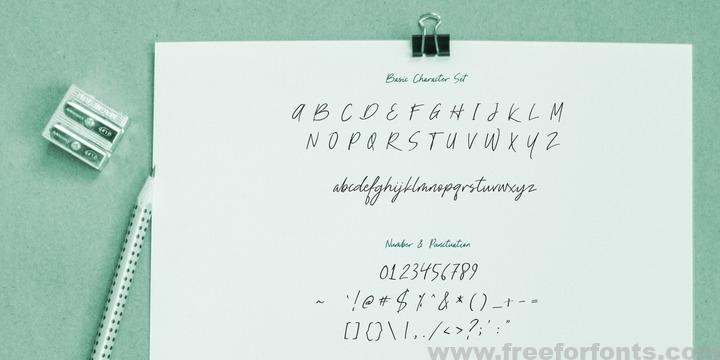 Basic Character Set
A B C D E F G H I J K L M
N O P Q R S T U V W X Y Z
abcdefghijklmnopqrstuvwxyz
Number & Punctuation
0123456789
~ `!@#$%^&*()_+-=
[]{}\|,./<>?;':"
www.freeforfonts.com